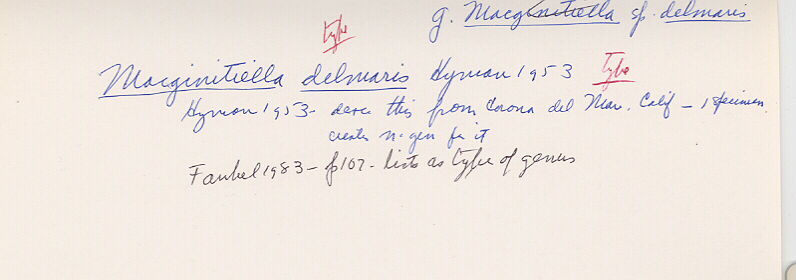 g. Macginitiella sp. delmaris
type
Macginitiella delmaris Hyman 1953 Type
Hyman 1953 - desc this from Corona del Mar, Calif - 1 specimen.
creates n. gen for it
Faubel 1983 - p107 - lists as type of genus